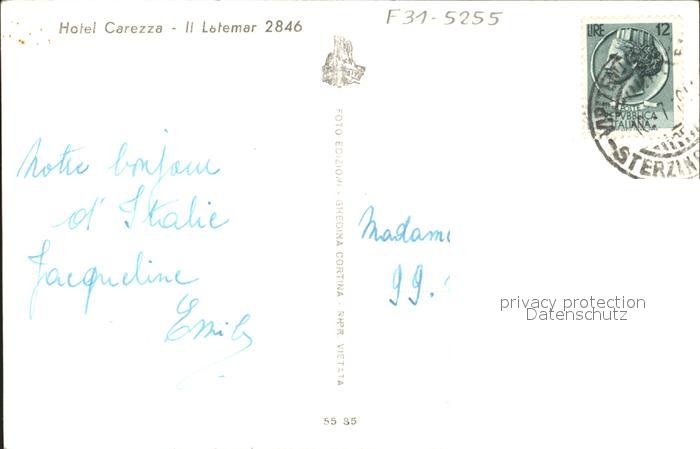 Hotel Carezza - Il Latemar 2846
F31-5255
LIRE 12
POSTE
REPVBBLICA
ITALIANA
VIPITENO
STERZING
Notre bonjour
d'Italie
Jacqueline
Emily
FOTO EDIZIONI - GHEDINA CORTINA - RIPR. VIETATA
Madame
99.
privacy protection
Datenschutz
55 85